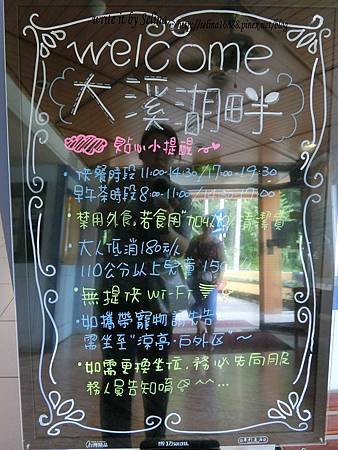 write it by Selina
http://selina16888.pixnet.net/blog
welcome
大溪湖畔
貼心小提醒
·供餐時段11:00-14:30/17:00-19:30
早午茶時段8:00-11:00/
·禁用外食,若食用"加收 清潔費
·大人低消180元/人
110公分以上兒童 15
·無提供Wi-Fi
·如攜帶寵物請先告
需坐至"涼亭·戶外区"~
·如需更換坐位,務必先向服
務人員告知唷 ^^...